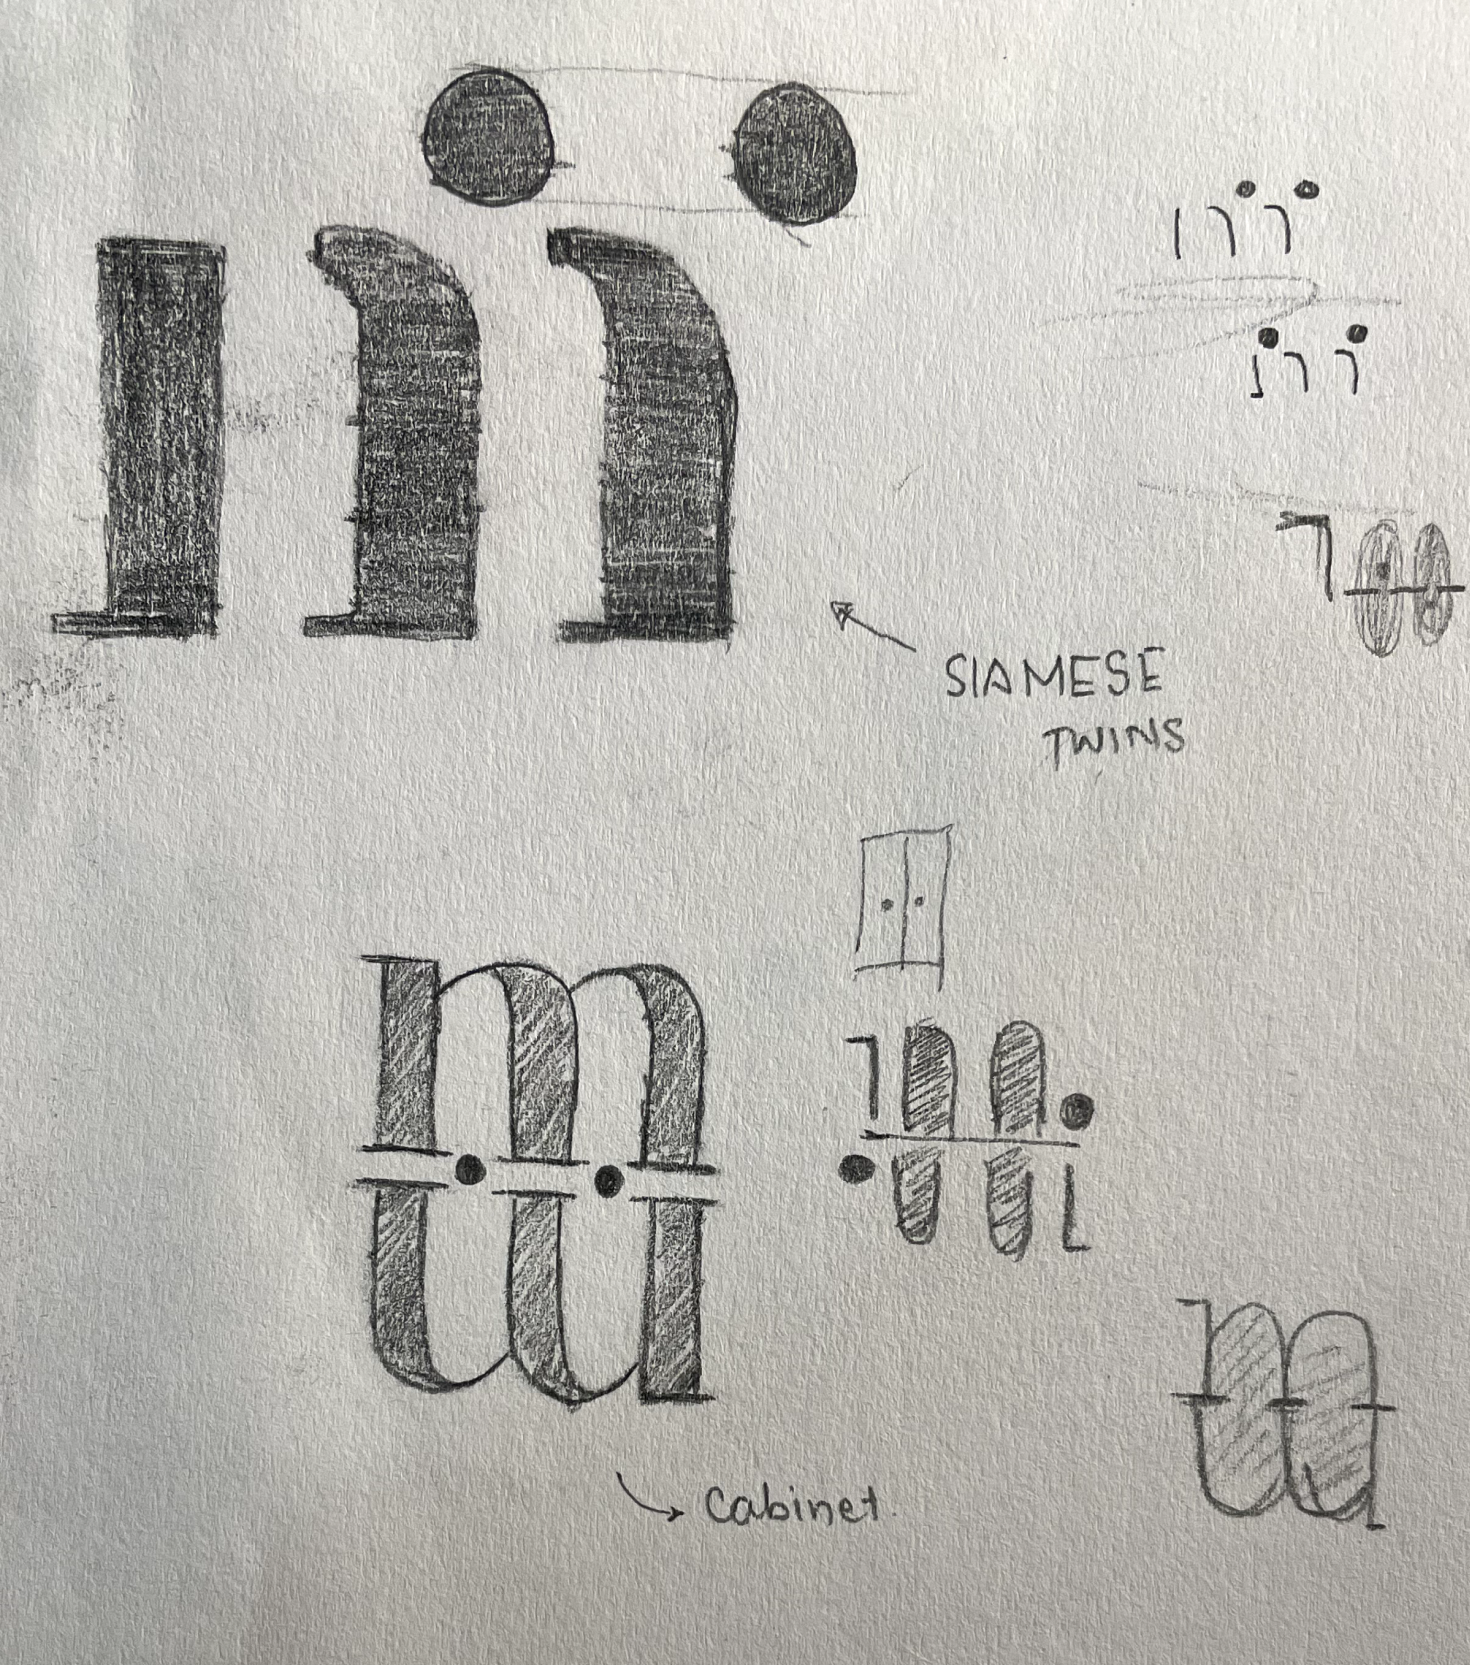 SIAMESE
TWINS
Cabinet